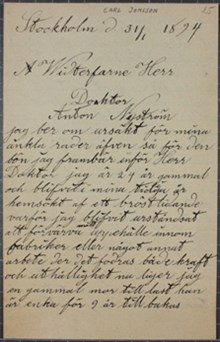 CARL JANSSON 15
Stockholm d 31/1 1894
Herr
Doktor
Anton Nyström
jag ber om ursäkt för mina
enkla rader äfven så för den
bön jag frambär inför Herr
Doktor jag är 24 år gammal
och blifvit i mina
hemsökt af ett bröstlidande
varför jag blifvit urståndsat
att förvärva uppehälle innom
fabriker eller något annat
arbete der det fodras både kraft
och uthållighet nu liger jag
en gammal mor till last hon
är enka för 9 år tillbakas